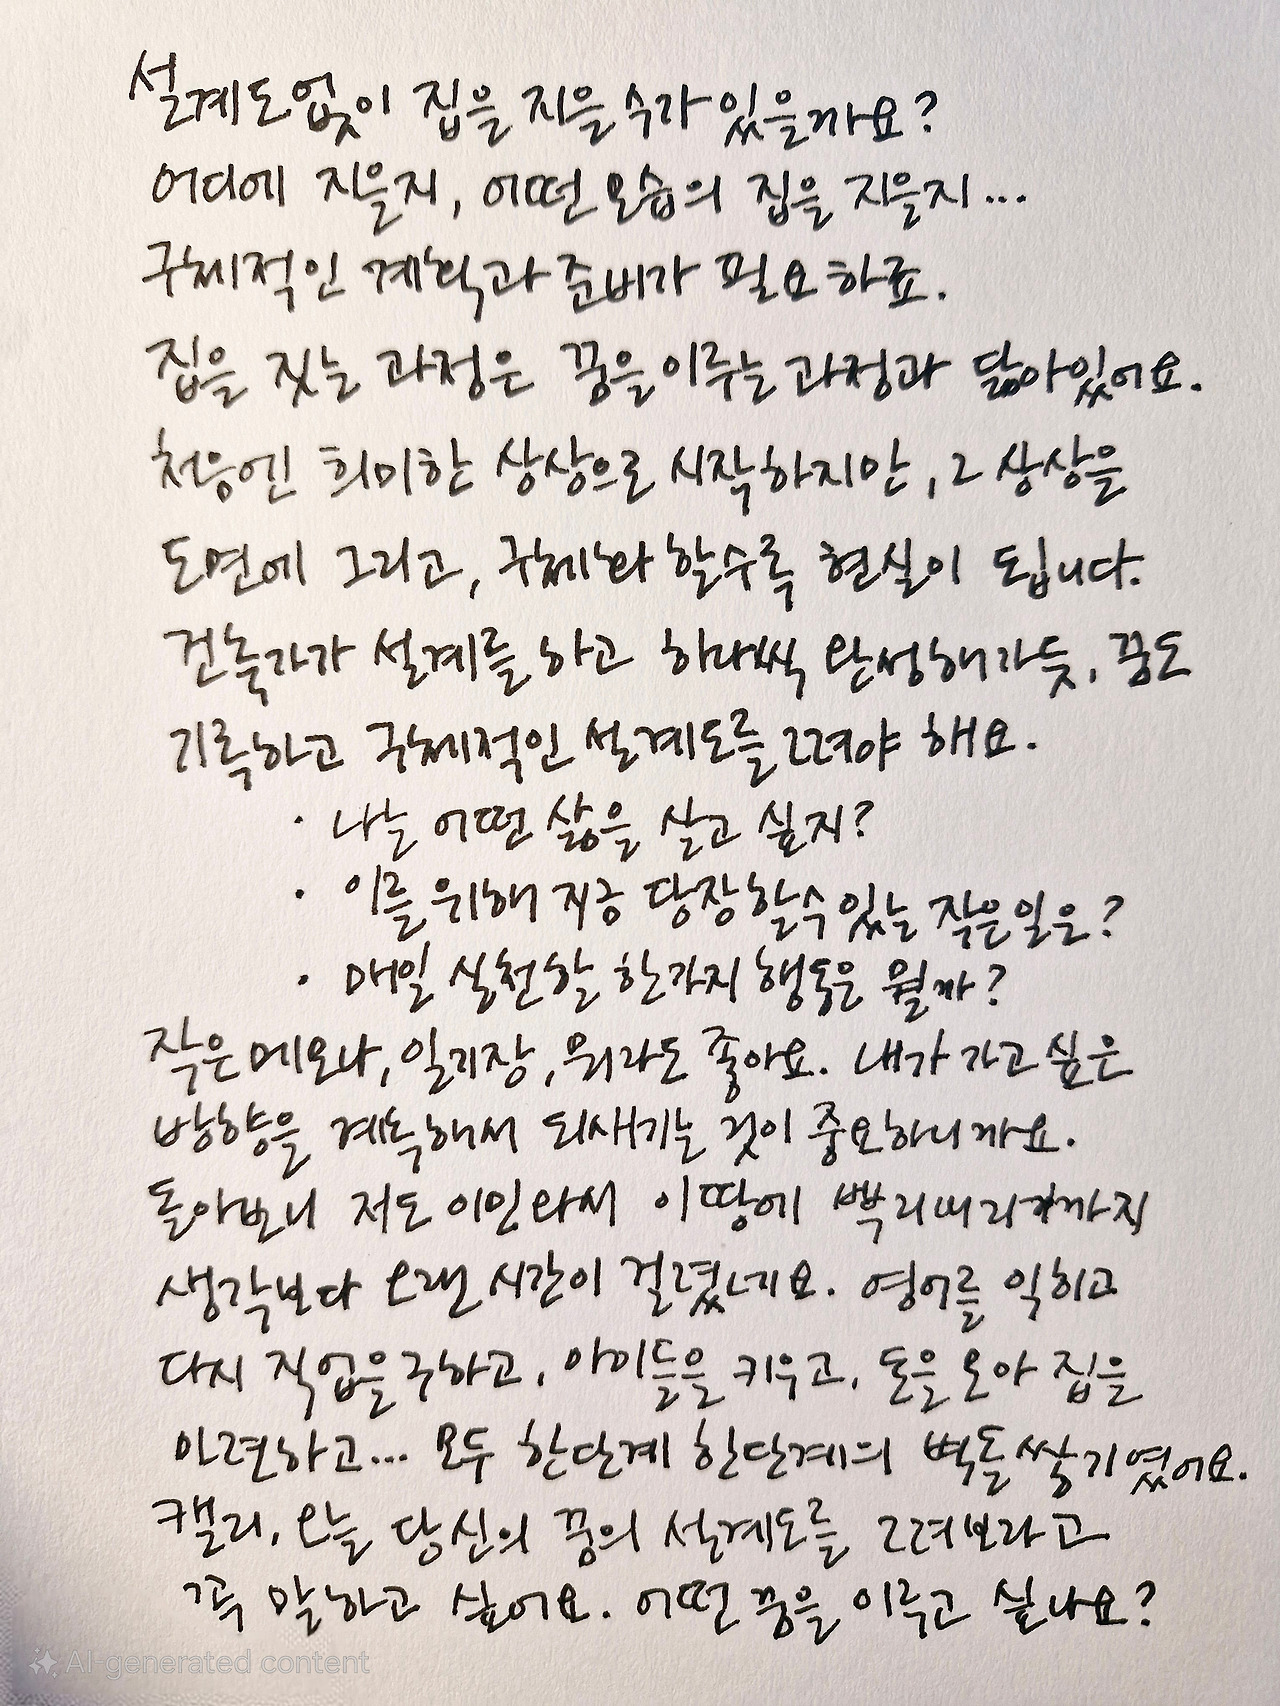 설계도 없이 집을 지을 수가 있을까요?
어디에 지을지, 어떤 모습의 집을 지을지...
구체적인 계획과 준비가 필요하죠.
집을 짓는 과정은 꿈을 이루는 과정과 닮아있어요.
처음엔 희미한 상상으로 시작하지만, 그 상상을
도면에 그리고, 구체화 할수록 현실이 됩니다.
건축가가 설계를 하고 하나씩 완성해가듯, 꿈도
기록하고 구체적인 설계도를 그려야 해요.
· 나는 어떤 삶을 살고 싶지?
· 이를 위해 지금 당장 할 수 있는 작은 일은?
· 매일 실천할 한가지 행동은 뭘까?
작은 메모나, 일기장, 뭐라도 좋아요. 내가 가고 싶은
방향을 계속해서 되새기는 것이 중요하니까요.
돌아보니 저도 이민와서 이 땅에 뿌리내리기까지
생각보다 오랜 시간이 걸렸네요. 영어를 익히고
다시 직업을 구하고, 아이들을 키우고, 돈을 모아 집을
마련하고... 모두 한단계 한단계의 벽돌쌓기였어요.
캘리, 오늘 당신의 꿈의 설계도를 그려보라고
꼭 말하고 싶어요. 어떤 꿈을 이루고 싶나요?
AI-generated content